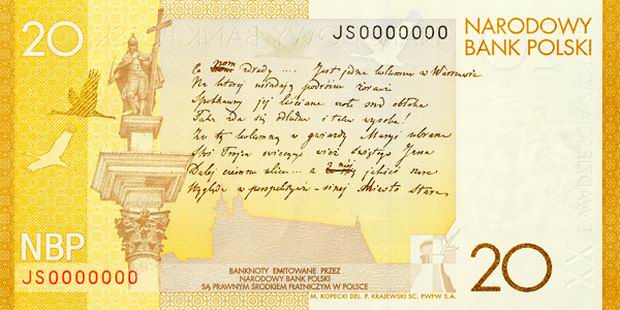 20
JS0000000
NARODOWY
BANK POLSKI
Co nam zdrady .... Jest jedna kolumna w Warszawie
Na ktorej usiadają podróżne żurawie
Spotkawszy jej liściane środ obłoka
Taka zda się odludna i taka wysoka!
Za tą kolumną w gwiazdy Maryi ubrana
Stoi Trójca swiecących wież świętego Jana
Dalej ciemna ulica ... a z niej jakieś szare
Wygląda w perspektywie - sinej Miasto Stare
NBP
JS0000000
BANKNOTY EMITOWANE PRZEZ
NARODOWY BANK POLSKI
SĄ PRAWNYM ŚRODKIEM PŁATNICZYM W POLSCE
M. KOPECKI DEL. P. KRAJEWSKI SC. PWPW S.A.
20
XX